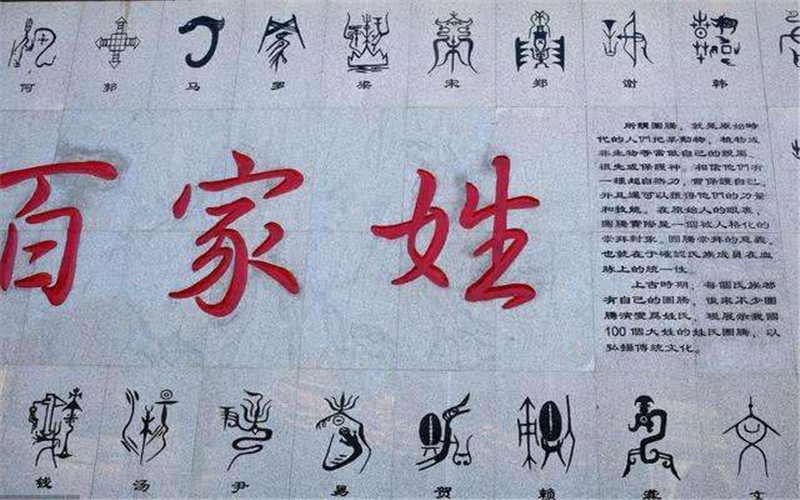 何 郭 马 罗 梁 宋 郑 谢 韩
百家姓
所謂圖騰，就是原始時
代的人們把某動物，植物或
非生物等當做自己的親屬，
祖先或保護神。相信他們有
一種超自然力，會保護自己，
并且還可以獲得他們的力量
和技能。在原始人的眼裏，
圖騰實際是一個被人格化的
崇拜對象。圖騰崇拜的意義，
也就在于確認氏族成員在血
脉上的統一性。
上古時期，每個氏族都
有自己的圖騰，後來不少圖
騰演變爲姓氏，現展示我國
100個大姓的姓氏圖騰，以
弘揚傳統文化。
錢 汤 尹 易 贺 赖 龚 文